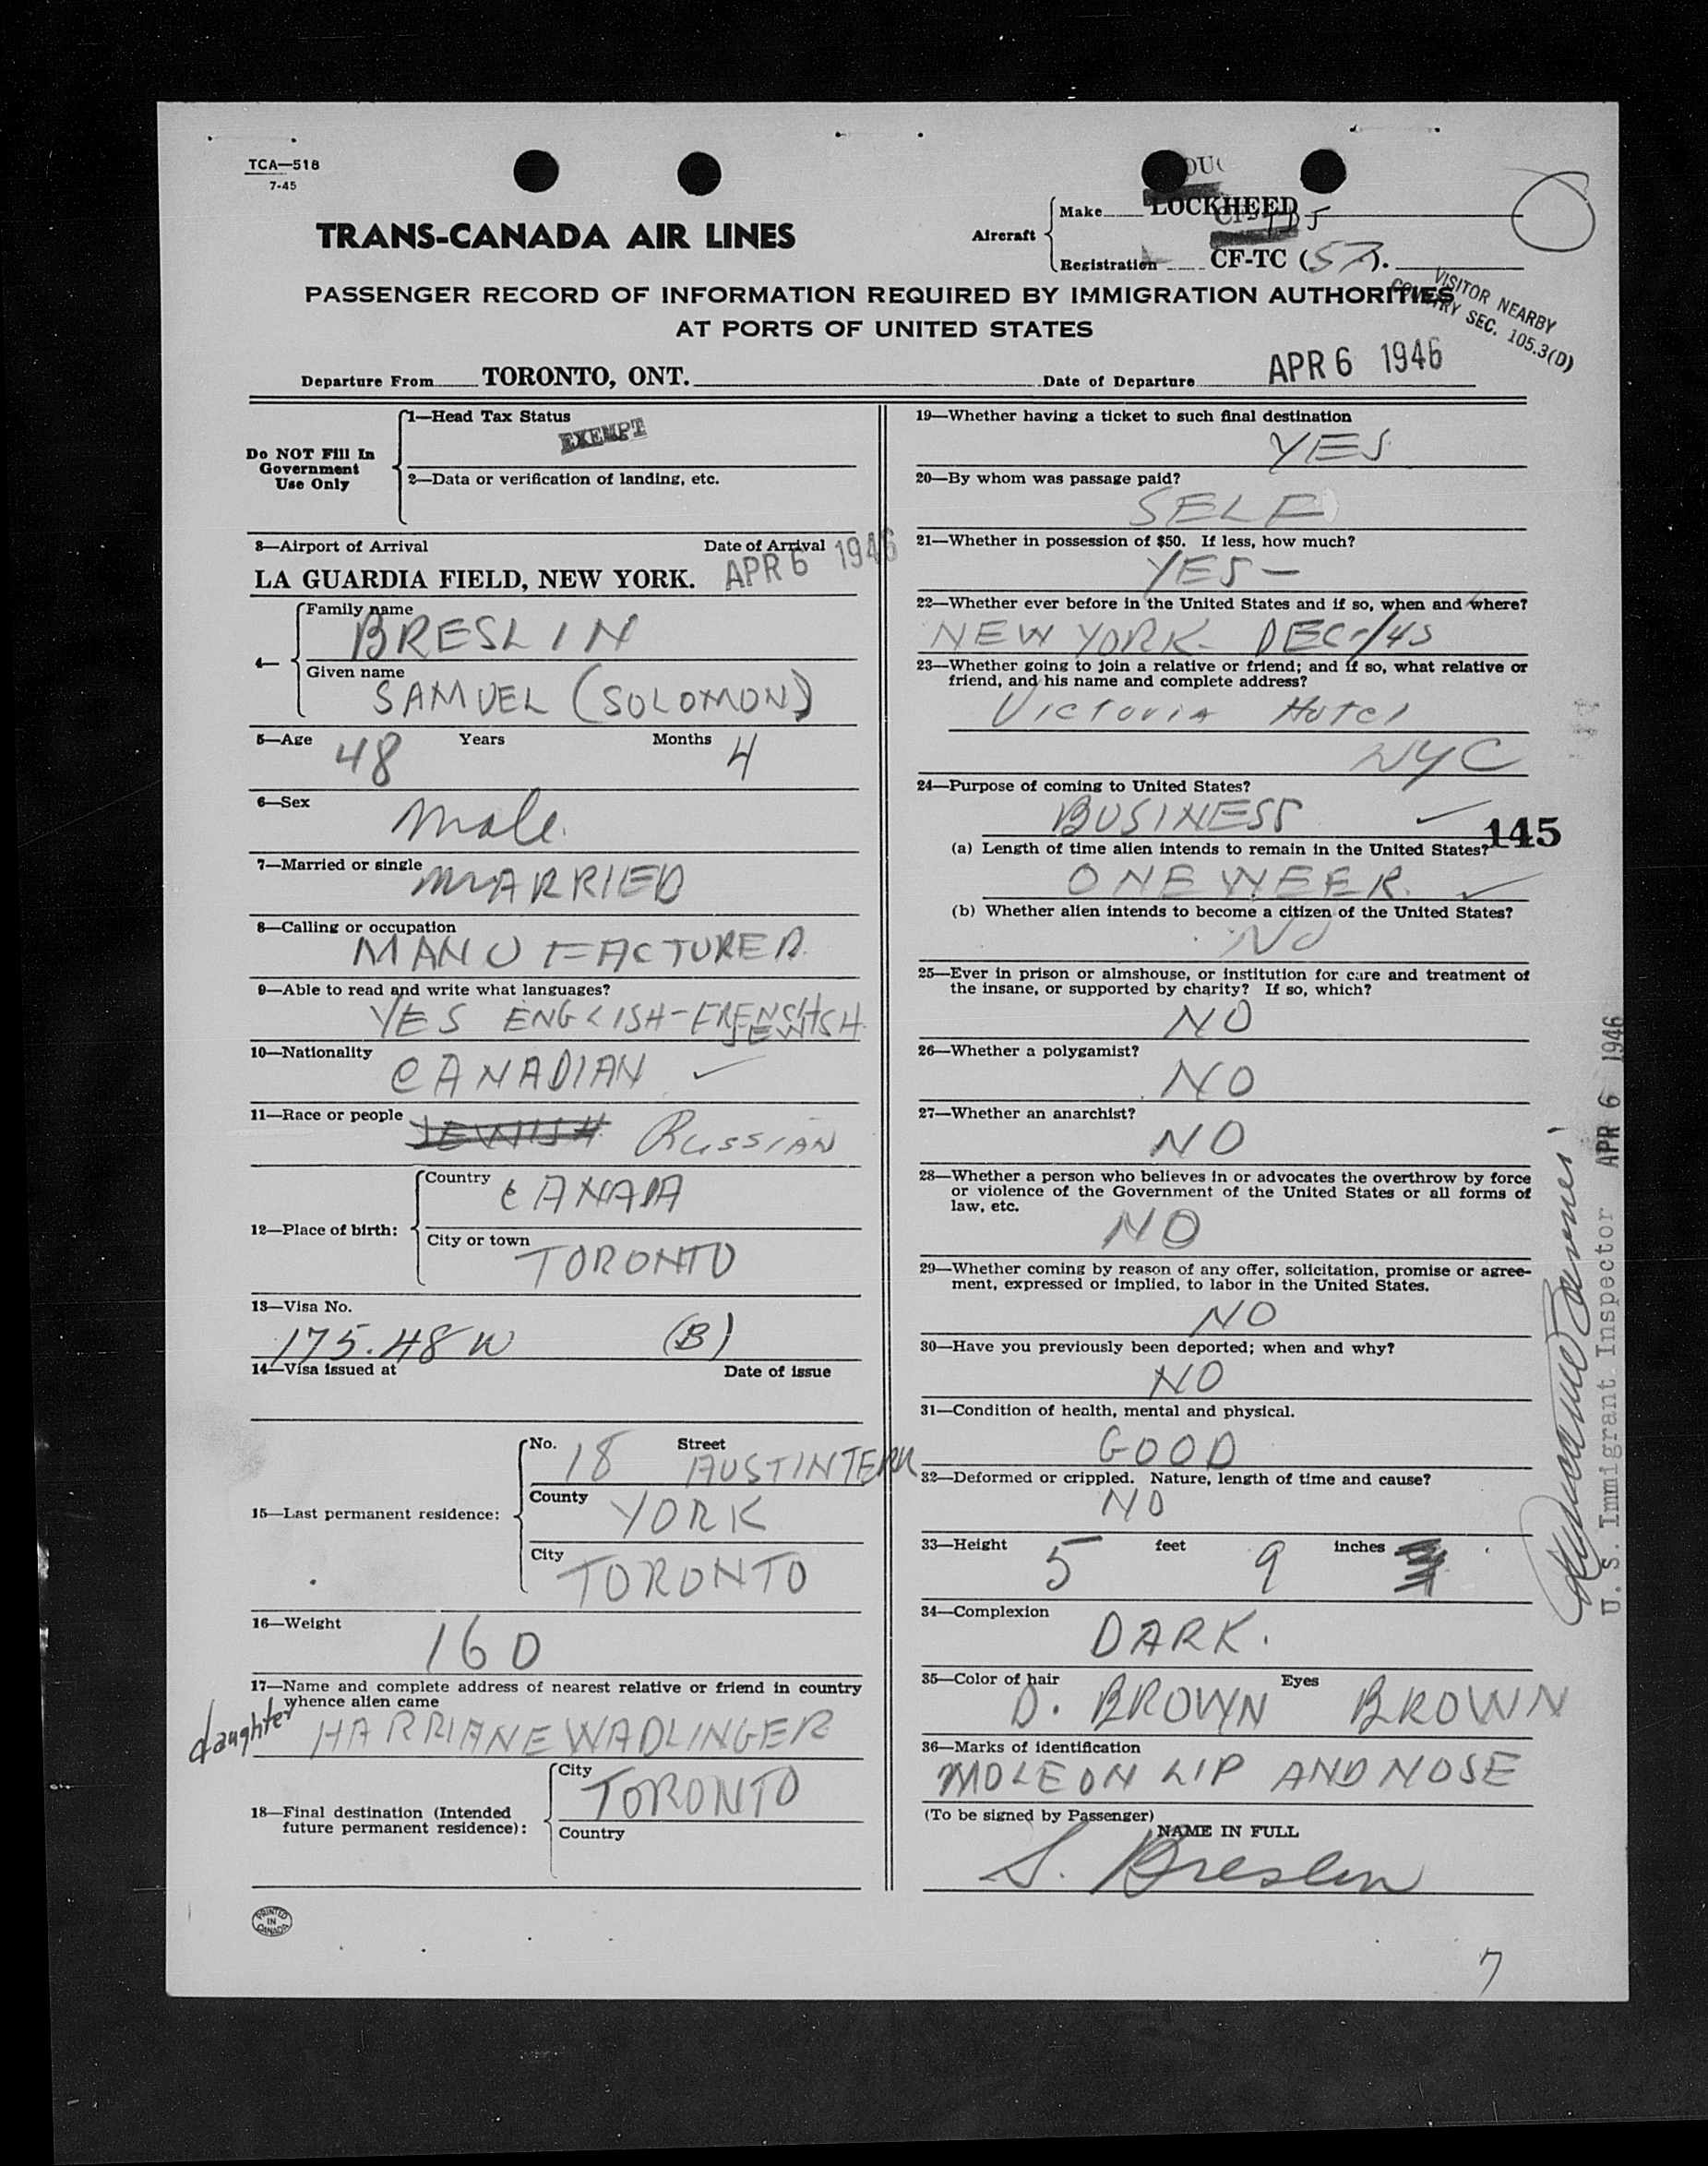 TCA—518
7-45
TRANS-CANADA AIR LINES
Aircraft
Make LOCKHEED
Registration CF-TC (57).
PASSENGER RECORD OF INFORMATION REQUIRED BY IMMIGRATION AUTHORITIES
AT PORTS OF UNITED STATES
VISITOR NEARBY
COUNTRY SEC. 105.3(D)
Departure From TORONTO, ONT. Date of Departure APR 6 1946
Do NOT Fill In
Government
Use Only
1—Head Tax Status
EXEMPT
2—Data or verification of landing, etc.
3—Airport of Arrival Date of Arrival
LA GUARDIA FIELD, NEW YORK. APR 6 1946
4— Family name
BRESLIN
Given name
SAMUEL (SOLOMON)
5—Age 48 Years Months 4
6—Sex
male.
7—Married or single
MARRIED
8—Calling or occupation
MANUFACTURER
9—Able to read and write what languages?
YES ENGLISH-FRENSH
JEWISH
10—Nationality
CANADIAN
11—Race or people JEWISH RUSSIAN
12—Place of birth:
Country
CANADA
City or town
TORONTO
13—Visa No.
175.48 W (B)
14—Visa issued at Date of issue
15—Last permanent residence:
No. 18 Street AUSTIN TERR
County
YORK
City
TORONTO
16—Weight
160
17—Name and complete address of nearest relative or friend in country
whence alien came
daughter HARRIANE WADLINGER
18—Final destination (Intended
future permanent residence):
City
TORONTO
Country
PRINTED
IN
CANADA
19—Whether having a ticket to such final destination
YES
20—By whom was passage paid?
SELF
21—Whether in possession of $50. If less, how much?
YES —
22—Whether ever before in the United States and if so, when and where?
NEW YORK - DEC-/45
23—Whether going to join a relative or friend; and if so, what relative or
friend, and his name and complete address?
Victoria Hotel
NYC
24—Purpose of coming to United States?
BUSINESS
145
(a) Length of time alien intends to remain in the United States?
ONE WEEK.
(b) Whether alien intends to become a citizen of the United States?
NO
25—Ever in prison or almshouse, or institution for care and treatment of
the insane, or supported by charity? If so, which?
NO
26—Whether a polygamist?
NO
27—Whether an anarchist?
NO
28—Whether a person who believes in or advocates the overthrow by force
or violence of the Government of the United States or all forms of
law, etc.
NO
29—Whether coming by reason of any offer, solicitation, promise or agree-
ment, expressed or implied, to labor in the United States.
NO
30—Have you previously been deported; when and why?
NO
31—Condition of health, mental and physical.
GOOD
32—Deformed or crippled. Nature, length of time and cause?
NO
33—Height 5 feet 9 inches
34—Complexion
DARK.
35—Color of hair Eyes
D. BROWN BROWN
36—Marks of identification
MOLE ON LIP AND NOSE
(To be signed by Passenger)
NAME IN FULL
S. Breslin
U. S. Immigrant Inspector APR 6 1946
7